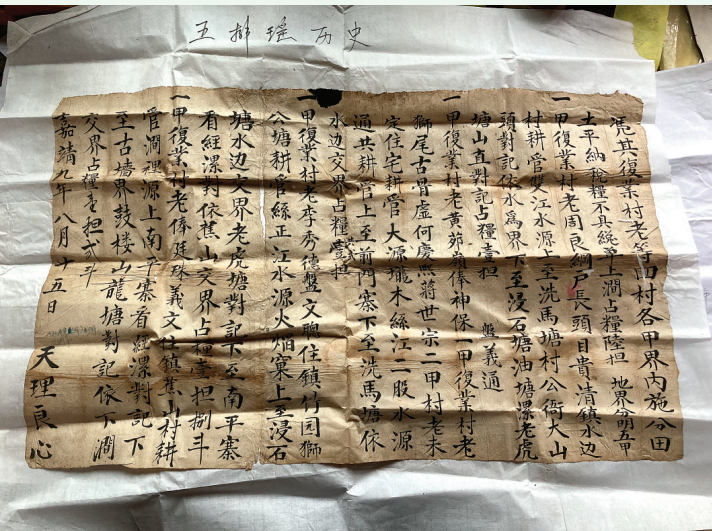 五排瑶历史
凭其復業村老等四村各甲界內施分田
土平納稅糧不具統單上澗占糧陸担 地界分明五甲
一甲復業村老周良綱户長頭目貴清鎮水边
村耕管雙江水源上至洗馬塘村公衙大山
頭對記依水為界下至浸石塘油塘漯老虎
塘山直對記占糧壹担 盤義通
一甲復業村老黄茆嶺俸神保一甲復業村老
獅尾古管虚何慶熙蔣世宗二甲村老未
定住宅耕管大源壠木絲江二股水源
通共耕管上至前門寨下至洗馬塘依
水边交界占糧壹担
一甲復業村老李秀德盤文聰住鎮竹园獅
公塘耕管絲正江水源火焰寨上至浸石
塘水边交界老虎塘對記下至南平寨
看經漯對依蕉山交界占糧壹担捌斗
一甲復業村老俸廷珠義文住鎮蕉山村耕
管澗裡源上南平寨看經漯對記下
至古墙界鼓楼山龍塘對記依下澗
交界占糧壹担弍斗
嘉靖九年八月十五日 天理良心